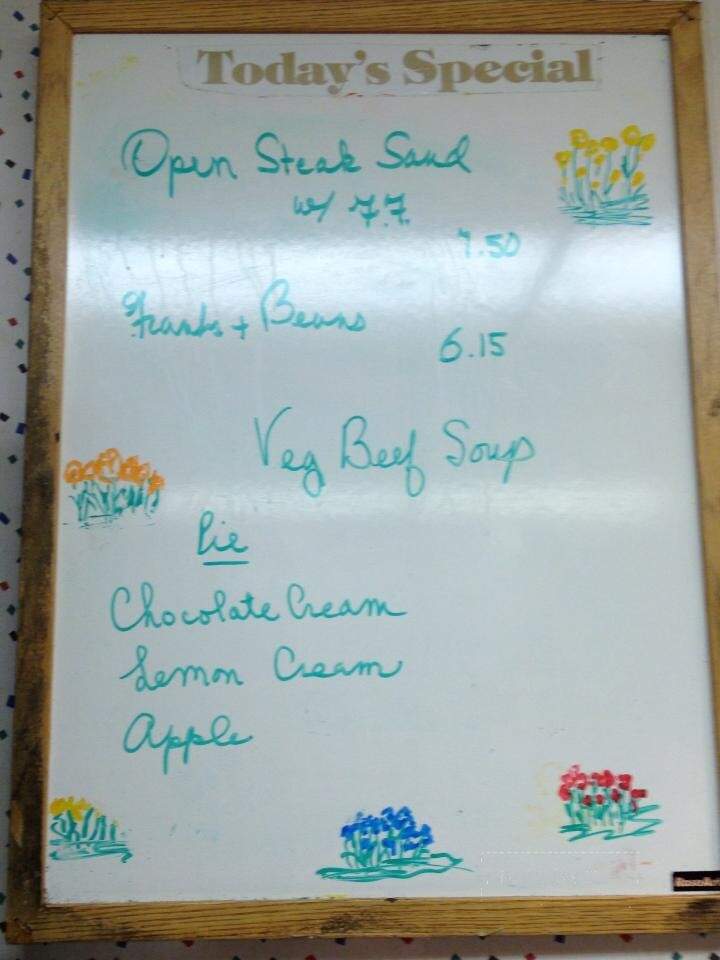 Today's Special
Open Steak Sand
w/ F.F.
7.50
Franks + Beans
6.15
Veg Beef Soup
Pie
Chocolate Cream
Lemon Cream
Apple